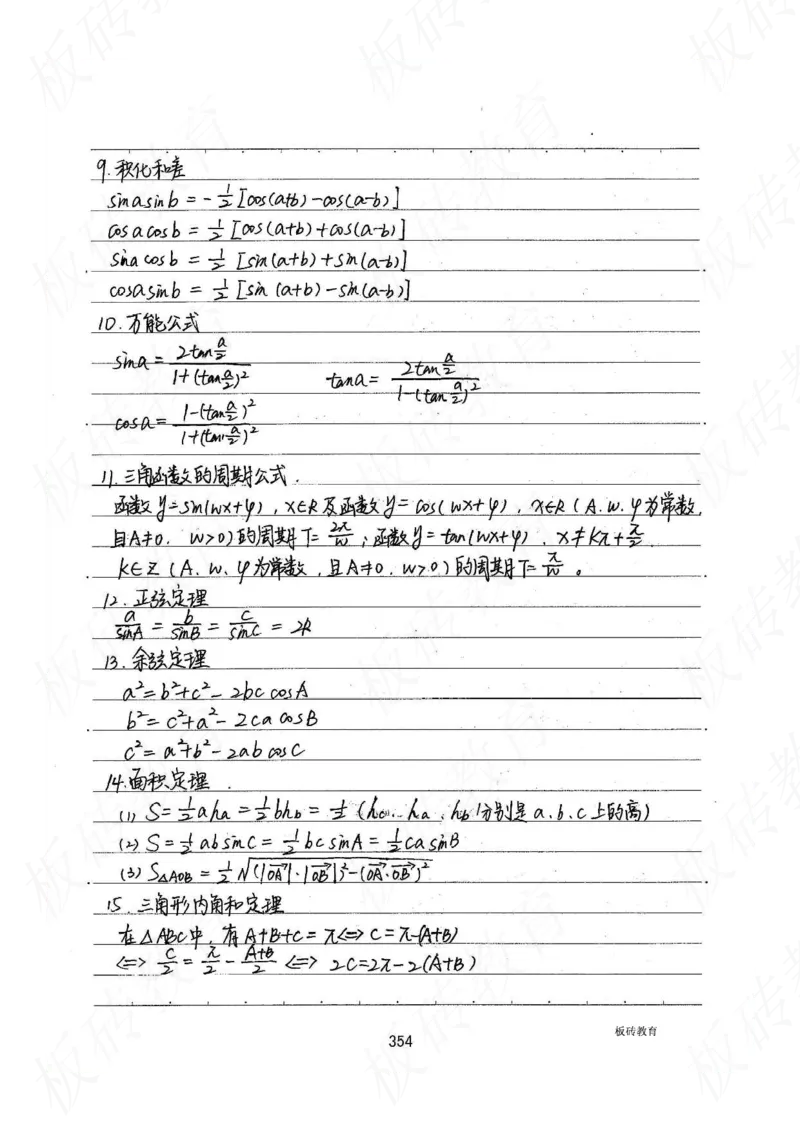 9.积化和差
sinasinb = -1/2[cos(a+b)-cos(a-b)]
cosacosb = 1/2[cos(a+b)+cos(a-b)]
sinacosb = 1/2[sin(a+b)+sin(a-b)]
cosasinb = 1/2[sin(a+b)-sin(a-b)]
10.万能公式
sina = 2tan a/2 / 1+(tan a/2)²    tana = 2tan a/2 / 1-(tan a/2)²
cosa = 1-(tan a/2)² / 1+(tan a/2)²
11.三角函数的周期公式.
函数y=sin(wx+φ),x∈R及函数y=cos(wx+φ),x∈R(A.w.φ为常数,
且A≠0.w>0)的周期T=2π/w;函数y=tan(wx+φ).x≠kπ+π/2.
k∈Z(A.w.φ为常数,且A≠0.w>0)的周期T=π/w。
12.正弦定理
a/sinA = b/sinB = c/sinC = 2R
13.余弦定理
a²=b²+c²-2bc cosA
b²=c²+a²-2ca cosB
c²=a²+b²-2ab cosC
14.面积定理.
(1) S=1/2aha=1/2bhb=1/2(hc.ha.hb分别是a.b.c上的高)
(2) S=1/2absinC=1/2bcsinA=1/2casinB
(3) S△AOB=1/2√(|OA|·|OB|)²-(OA·OB)²
15.三角形内角和定理
在△ABC中,有A+B+C=π⇔C=π-(A+B)
⇔C/2=π/2-A+B/2⇔2C=2π-2(A+B)
354
板砖教育